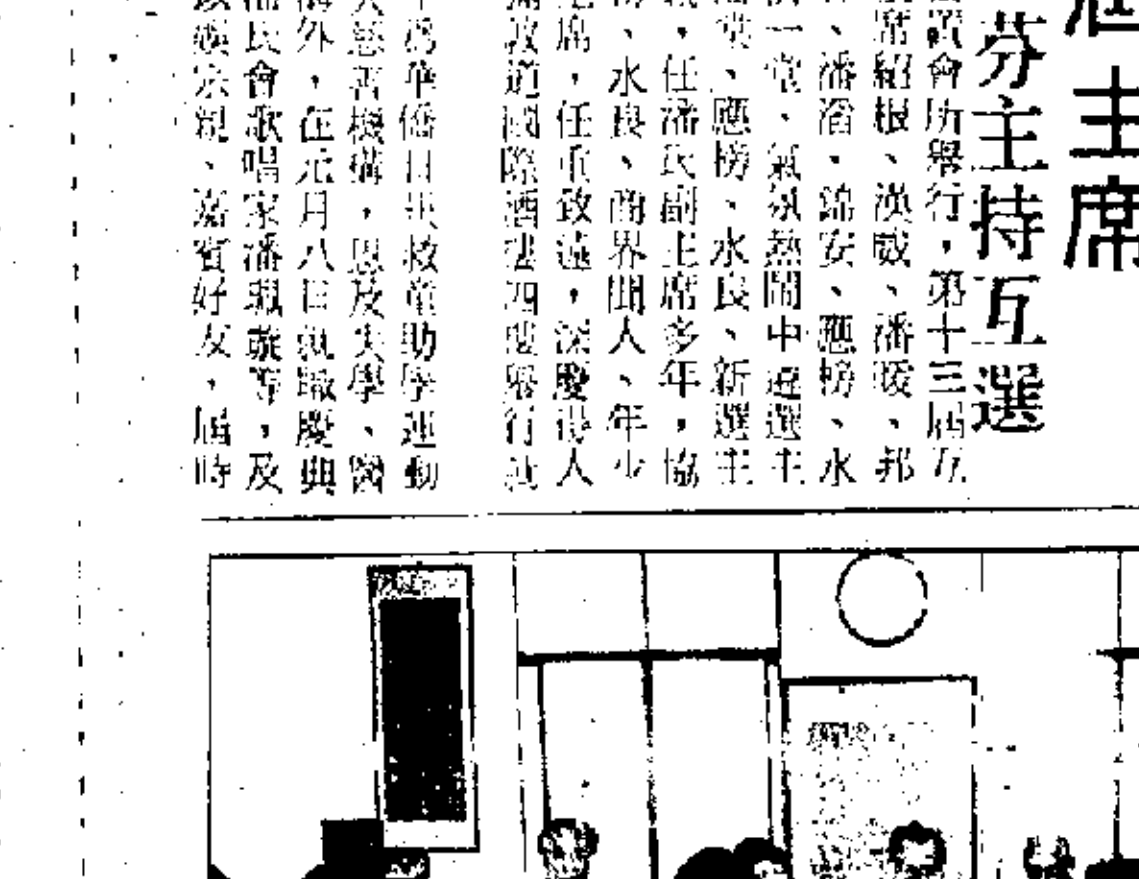 屆主席
芬主持互選
置會所舉行，第十三屆互
席紹根、漢威、潘暖、邦
、潘滔、錦安、應榜、水
一堂、氣氛熱鬧中連選主
堂、應榜、水良、新選主
，任潘氏副主席多年，協
、水良、商界聞人、年少
席，任重致遠，深慶得人
敦道國際酒樓四樓舉行就
為華僑日報救童助學運動
慈善機構，思及失學、醫
外，在元月八日就職慶典
民會歌唱家潘珮璇等，及
宗親、嘉賓好友，屆時